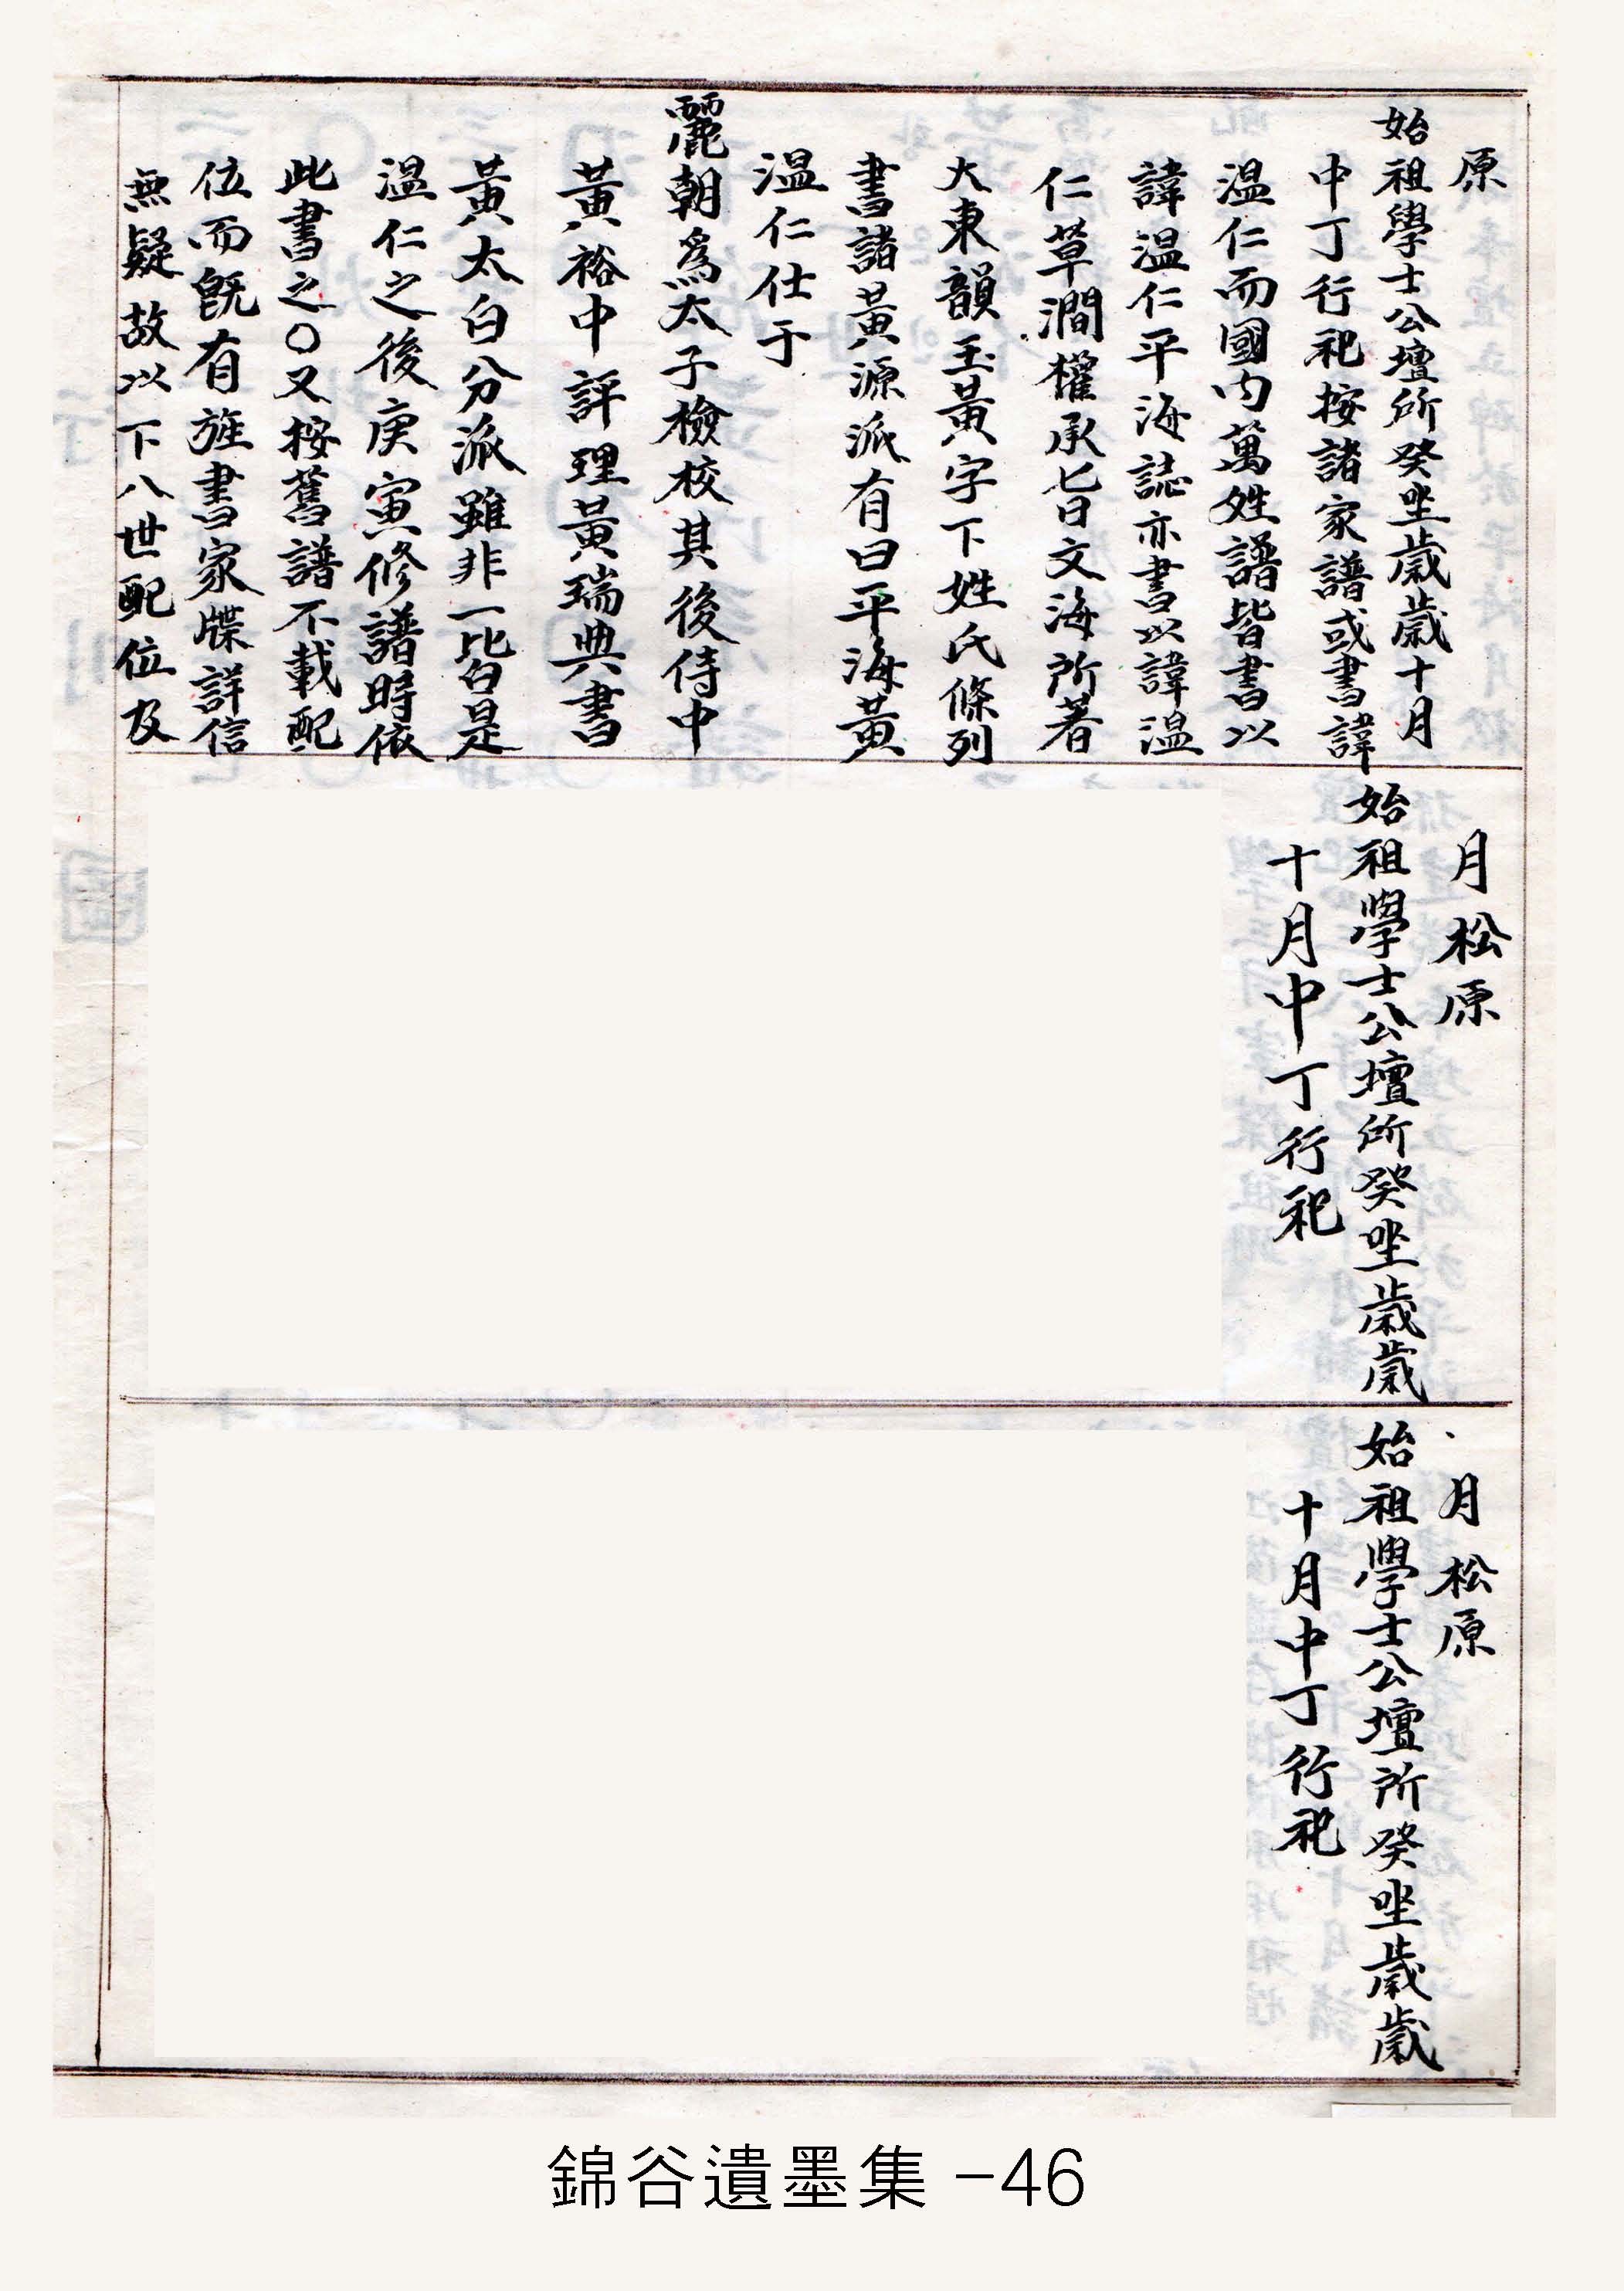 原
始祖學士公壇所癸坐歲歲十月
中丁行祀按諸家譜或書諱
溫仁而國内萬姓譜皆書以
諱溫仁平海誌亦書以諱溫
仁草澗權承旨文海所著
大東韻玉黃字下姓氏條列
書諸黃源派有曰平海黃
溫仁仕于
麗朝爲太子檢校其後侍中
黃裕中評理黃瑞典書
黃太白分派雖非一皆是
溫仁之後庚寅修譜時依
此書之○又按舊譜不載配
位而旣有旌書家牒詳信
無疑故以下八世配位及
月松原
始祖學士公壇所癸坐歲歲
十月中丁行祀
月松原
始祖學士公壇所癸坐歲歲
十月中丁行祀
錦谷遺墨集 -46